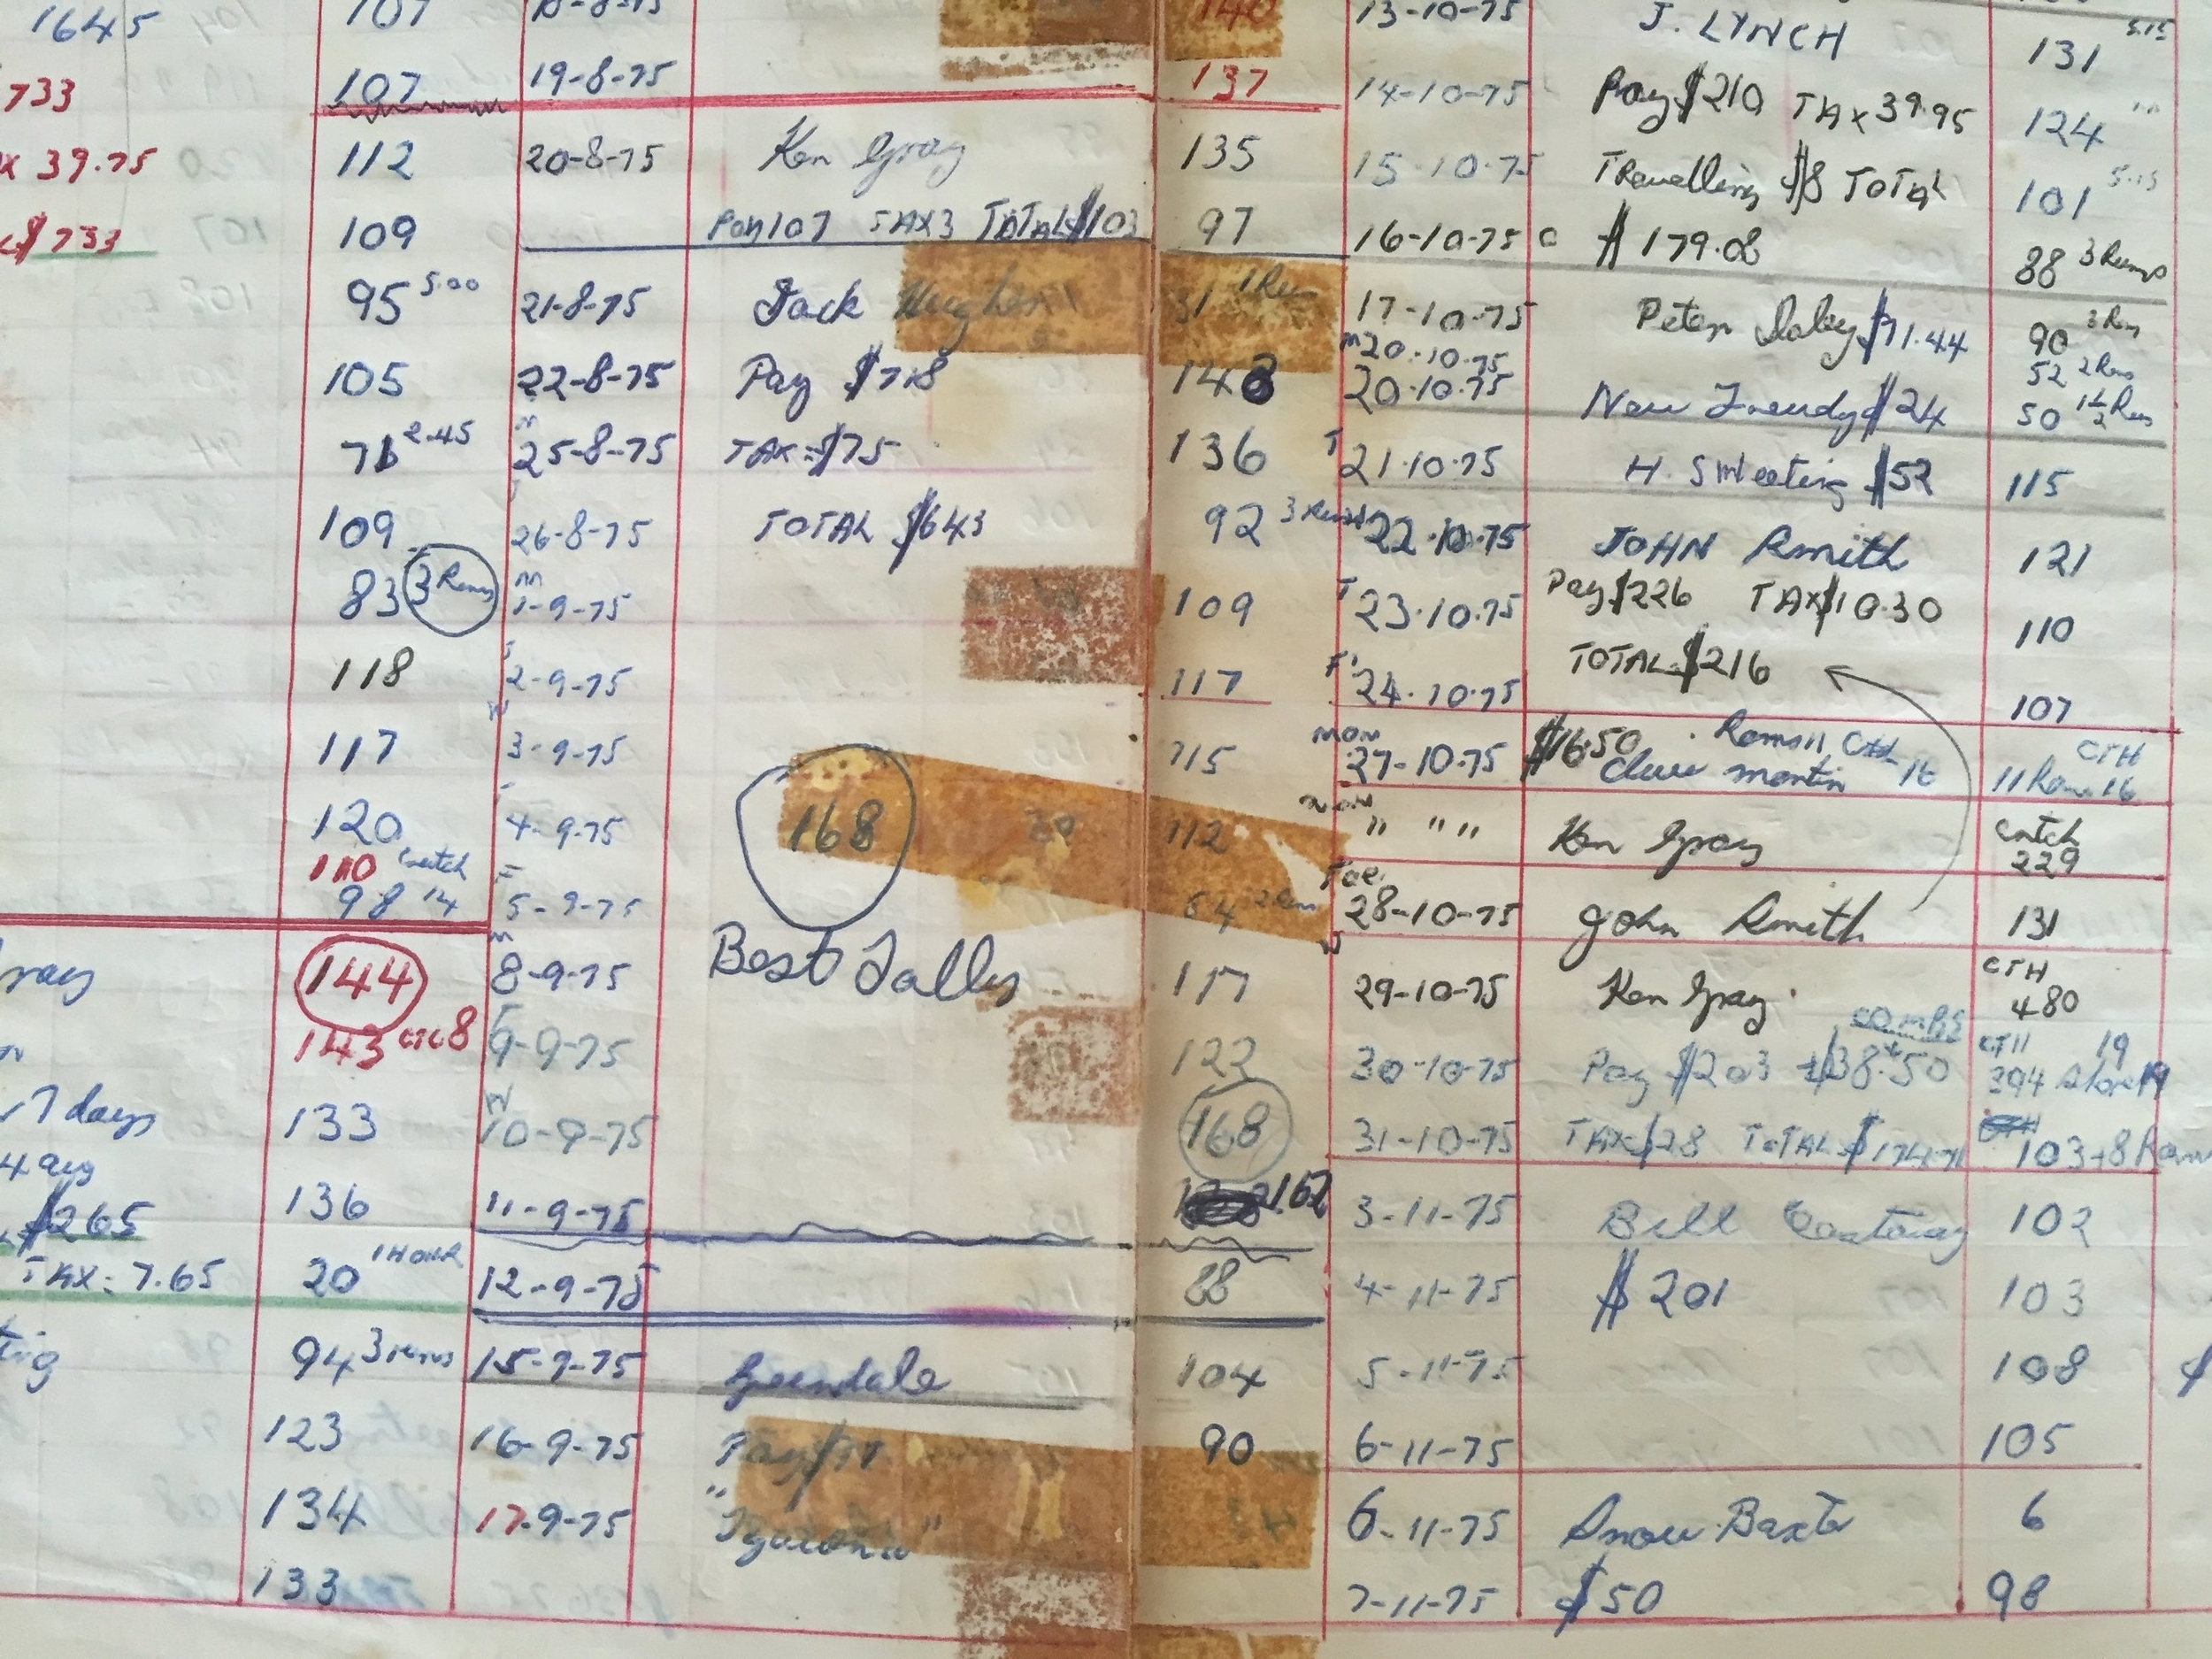 1645 107 18-8-75 140 13-10-75 J. LYNCH 131 5.15
733 107 19-8-75 137 14-10-75 Pay $210 TAX 39.95 124
x 39.75 112 20-8-75 Ken Gray 135 15.10.75 Travelling $8 TOTAL 101 5.15
$733 109 Pay 107 TAX3 TOTAL $103 97 16-10-75 $179.08 88 3 Rams
95 5.00 21-8-75 Jack Hughes 1 Ram 17-10-75 Peter $71.44 90 3 Rams
m20.10.75 52 2 Rams
105 22-8-75 Pay $718 148 20.10.75 $24 50 1½ Rams
2.45 m 25-8-75 TAX=$75 136 T 21.10.75 H. SWeeting $52 115
109 26-8-75 TOTAL $643 92 22.10.75 JOHN Smith 121
83 3 Rams m 1-9-75 109 T 23.10.75 Pay $226 TAX $10.30 110
118 2-9-75 117 F 24.10.75 TOTAL $216 107
117 W 3-9-75 115 mon 27-10.75 $16.50 Rams 11 CTH 16 CTH
Clive martin 11 Rams 16
120 4-9-75 168 112 mon " " " Ken Gray Catch 229
110 Catch
98 14 F 5-9-75 64 2 Rams Tue 28-10-75 John Smith 131
ray 144 m 8-9-75 Best Tally 117 W 29-10-75 Ken Gray CTH 480
143 8 9-9-75 122 30-10-75 Pay $203 + $38.50 combs 394 19
7 days 133 W 10-9-75 168 31-10-75 TAX $28 TOTAL 103+8 Rams
4 avg
$265 136 11-9-75 162 3-11-75 Bill 102
TAX: 7.65 20 1 HOUR 12-9-75 88 4-11-75 $201 103
ting 94 3 rams 15-9-75 Greendale 104 5-11-75 108
123 16-9-75 90 6-11-75 105
134 17-9-75 6-11-75 Snow Baxter 6
133 7-11-75 $50 98